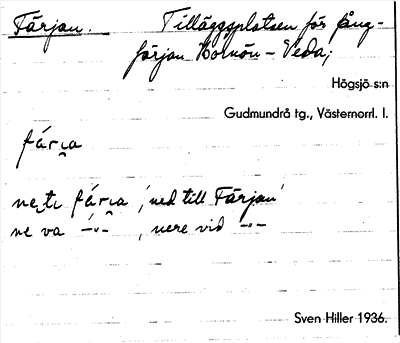 Färjan. Tilläggsplatsen för ång-
färjan Hornön - Veda;
Högsjö s:n
Gudmundrå tg., Västernorrl. l.
fárɩ̯a
ne̯tɩ fárɩ̯a 'ned till Färjan'
ne va -"- , nere vid -"-
Sven Hiller 1936.